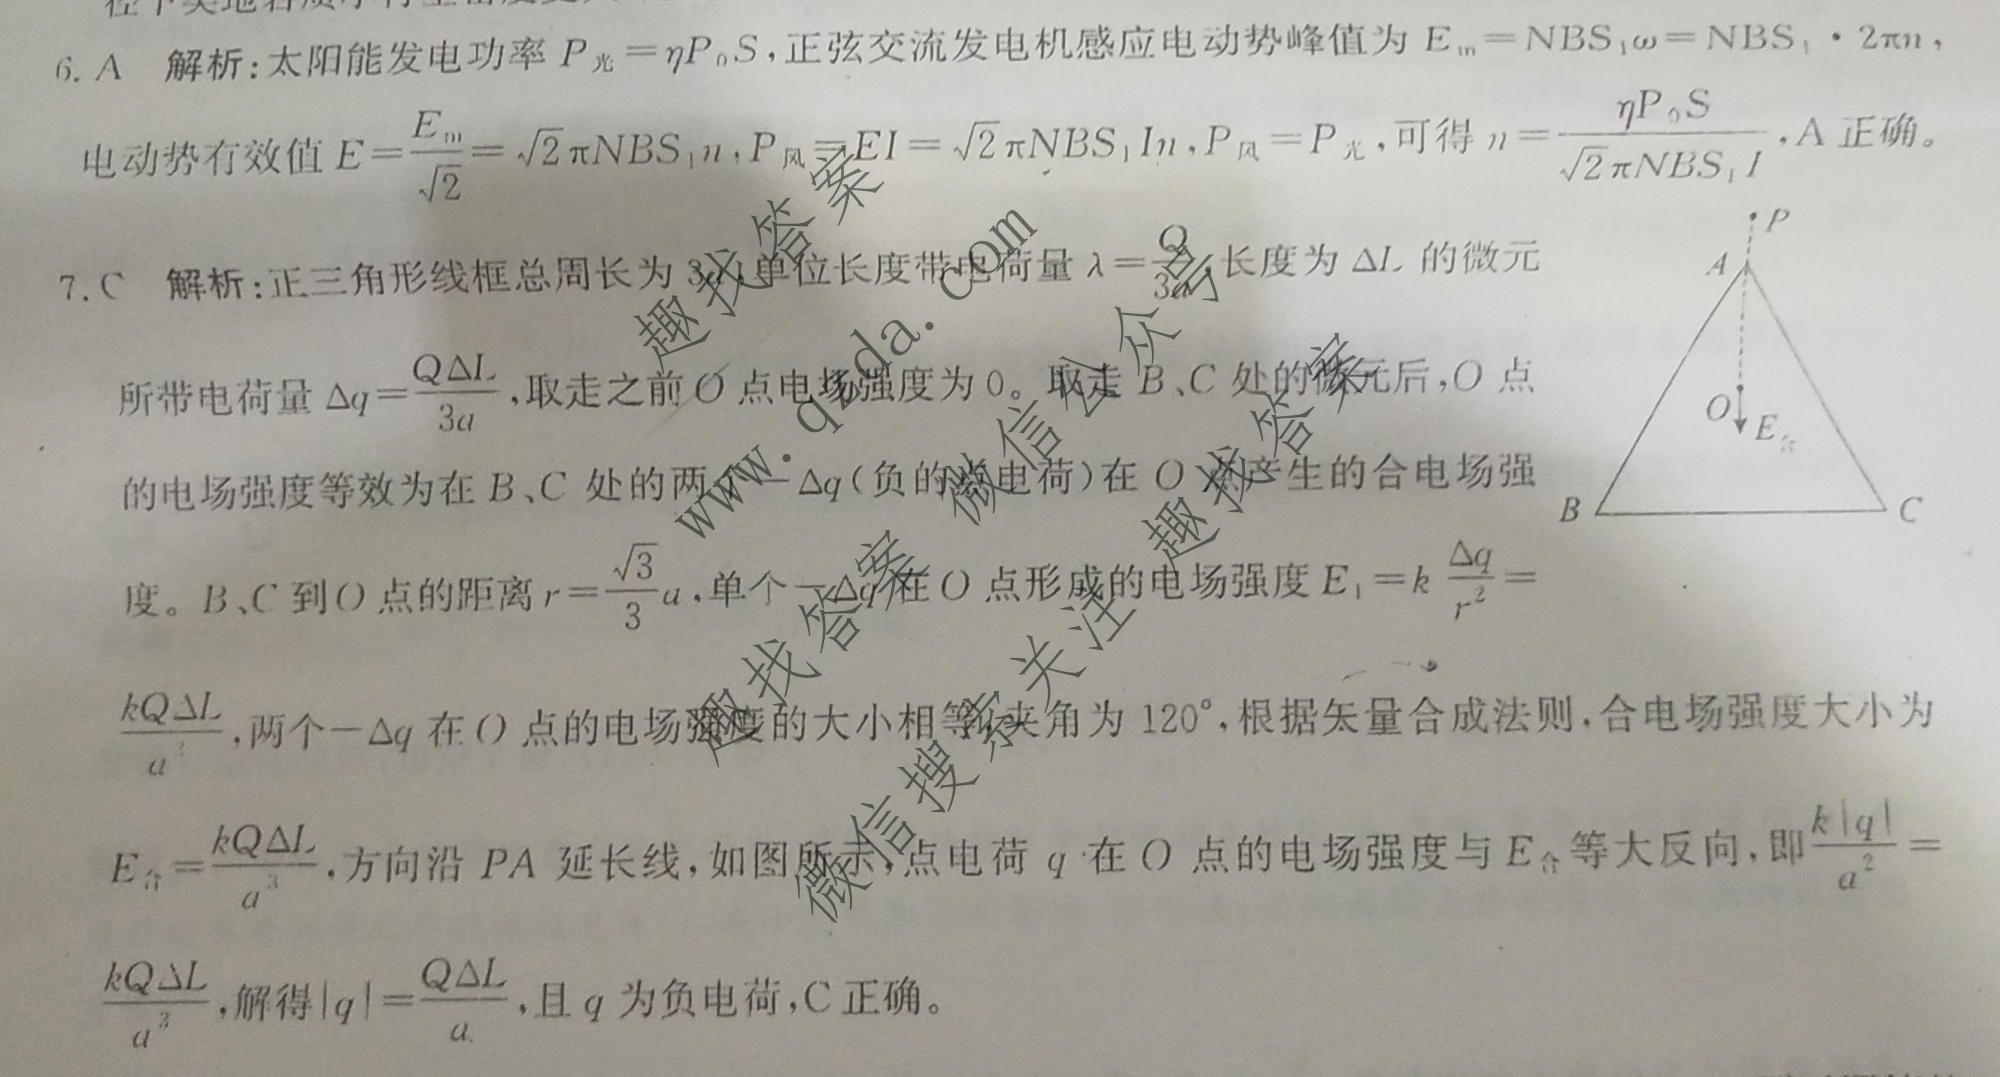 6. A 解析:太阳能发电功率 P光=ηP₀S,正弦交流发电机感应电动势峰值为 Eₘ=NBS₁ω=NBS₁·2πn,
电动势有效值 E=Eₘ/√2=√2πNBS₁n,P风=EI=√2πNBS₁In,P风=P光,可得 n=ηP₀S/(√2πNBS₁I),A 正确。
7. C 解析:正三角形线框总周长为 3a,单位长度带电荷量 λ=Q/3a,长度为 ΔL 的微元
所带电荷量 Δq=QΔL/3a,取走之前 O 点电场强度为 0。取走 B、C 处的微元后,O 点
的电场强度等效为在 B、C 处的两个-Δq(负的点电荷)在 O 点产生的合电场强
度。B、C 到 O 点的距离 r=(√3/3)a,单个-Δq 在 O 点形成的电场强度 E₁=kΔq/r²=
kQΔL/a³,两个-Δq 在 O 点的电场强度的大小相等,夹角为 120°,根据矢量合成法则,合电场强度大小为
E合=kQΔL/a³,方向沿 PA 延长线,如图所示,点电荷 q 在 O 点的电场强度与 E合 等大反向,即k|q|/a²=
kQΔL/a³,解得|q|=QΔL/a,且 q 为负电荷,C 正确。
P
A
O
E合
B
C
趣找答案
www.qzda.com
微信公众号
趣找答案
微信搜索关注
趣找答案